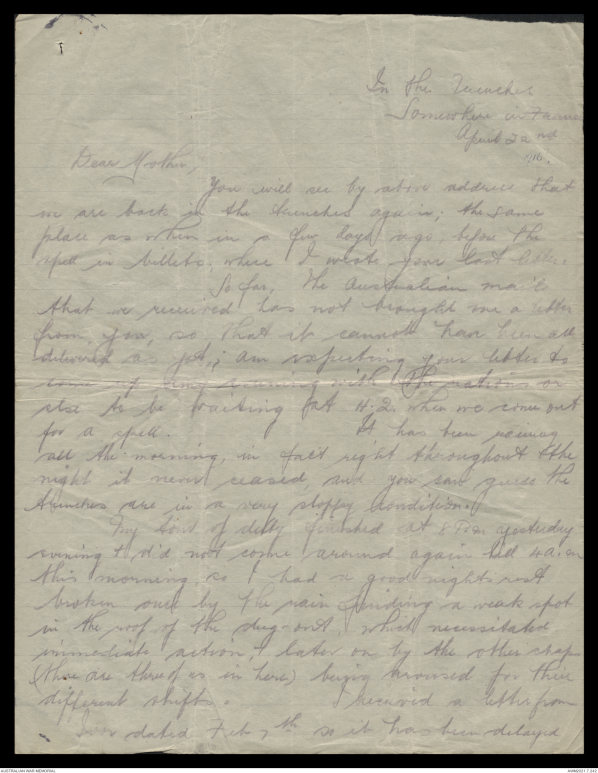 In the Trenches
Somewhere in France
April 22nd
1916.
Dear Mother,
You will see by above address that
we are back in the trenches again; the same
place as when in a few days ago, before the
spell in billets, where I wrote your last letter.
So far, the Australian mail
that we received has not brought me a letter
from you, so that it cannot have been all
delivered as yet; am expecting your letter to
come up this evening with the rations or
else to be waiting at H.Q. when we come out
for a spell. It has been raining
all the morning, in fact right throughout the
night it never ceased, and you can guess the
trenches are in a very sloppy condition.
My tour of duty finished at 8 P.m. yesterday
evening & did not come around again till 4 a.m
this morning so I had a good nights rest
broken once by the rain finding a weak spot
in the roof of the dug-out, which necessitated
immediate action, & later on by the other chaps
(there are three of us in here) being aroused for their
different shifts. I received a letter from
dated Feb 7th so it has been delayed
AUSTRALIAN WAR MEMORIAL
AWM2021.7.242